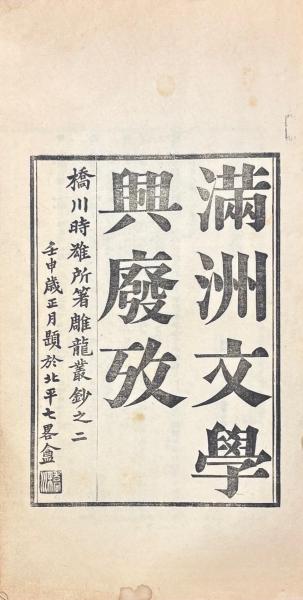 滿洲文學
興廢攷
橋川時雄所著雕龍叢鈔之二
壬申歲正月題於北平七畧盦